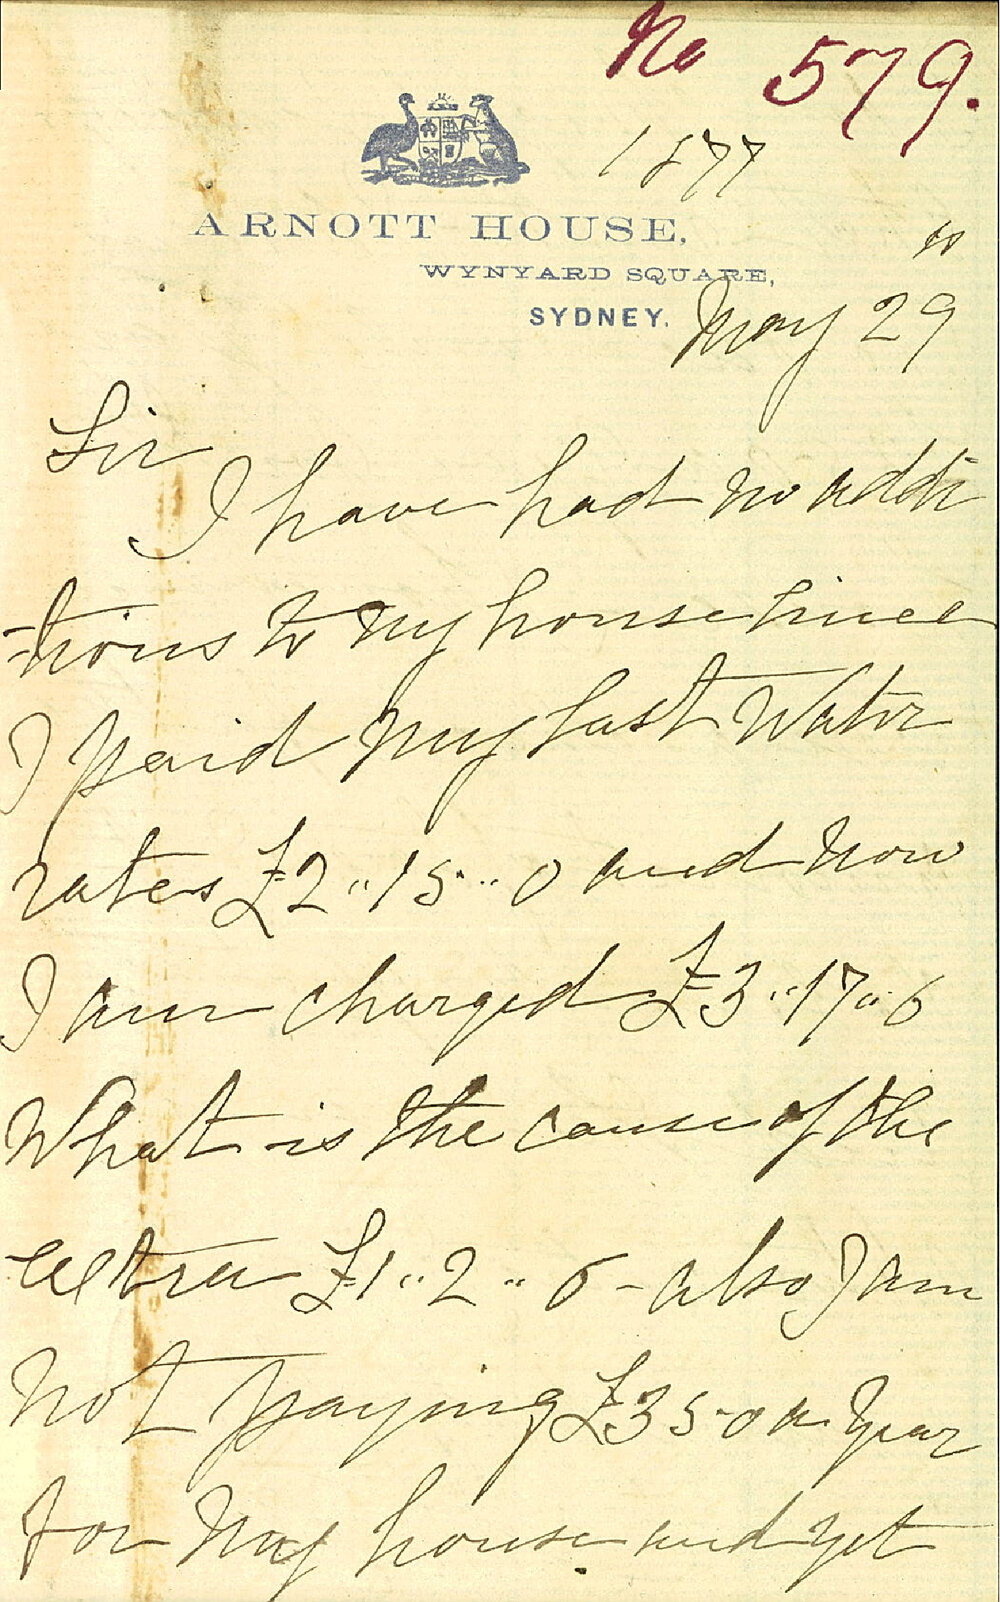 No 579.
1877
ARNOTT HOUSE,
WYNYARD SQUARE,
SYDNEY.
May 29
Sir
I have had no addi
=tions to my house since
I paid my last Water
rates £2"15"0 and now
I am charged £3"17"6
What is the cause of the
extra £1"2"6 - also I am
not paying £350 a year
for my house and yet